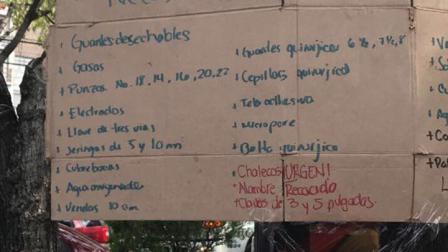 Guantes desechables
Gasas
Punzos No. 18, 14, 16, 20, 22
Electrodos
Llave de tres vias
Jeringas de 5 y 10 ml
Cubrebocas
Agua oxigenada
Vendas 10 cm
Guantes quirurjicos 6 ½, 7 ½, 8
Cepillos quirurjico
Tela adhesiva
micropore
Bata quirurjico
Chalecos URGEN!
Nombre
Clavos de 3 y 5 pulgadas